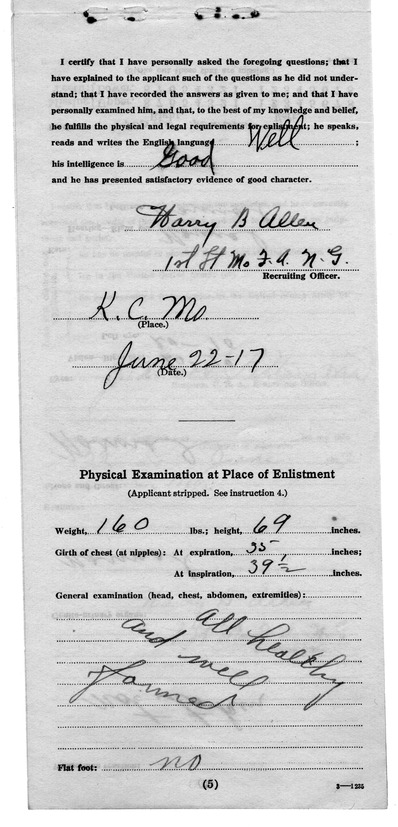 I certify that I have personally asked the foregoing questions; that I
have explained to the applicant such of the questions as he did not under-
stand; that I have recorded the answers as given to me; and that I have
personally examined him, and that, to the best of my knowledge and belief,
he fulfills the physical and legal requirements for enlistment; he speaks,
reads and writes the English language Well ;
his intelligence is Good
and he has presented satisfactory evidence of good character.
Harry B Allen
1st Lt Mo F.A. N.G.
Recruiting Officer.
K. C. Mo.
(Place.)
June 22-17
(Date.)
Physical Examination at Place of Enlistment
(Applicant stripped. See instruction 4.)
Weight, 160 lbs.; height, 69 inches.
Girth of chest (at nipples): At expiration, 35 inches;
At inspiration, 39 1/2 inches.
General examination (head, chest, abdomen, extremities):
all healthy
and well
formed
Flat foot: no
(5)
3—1235